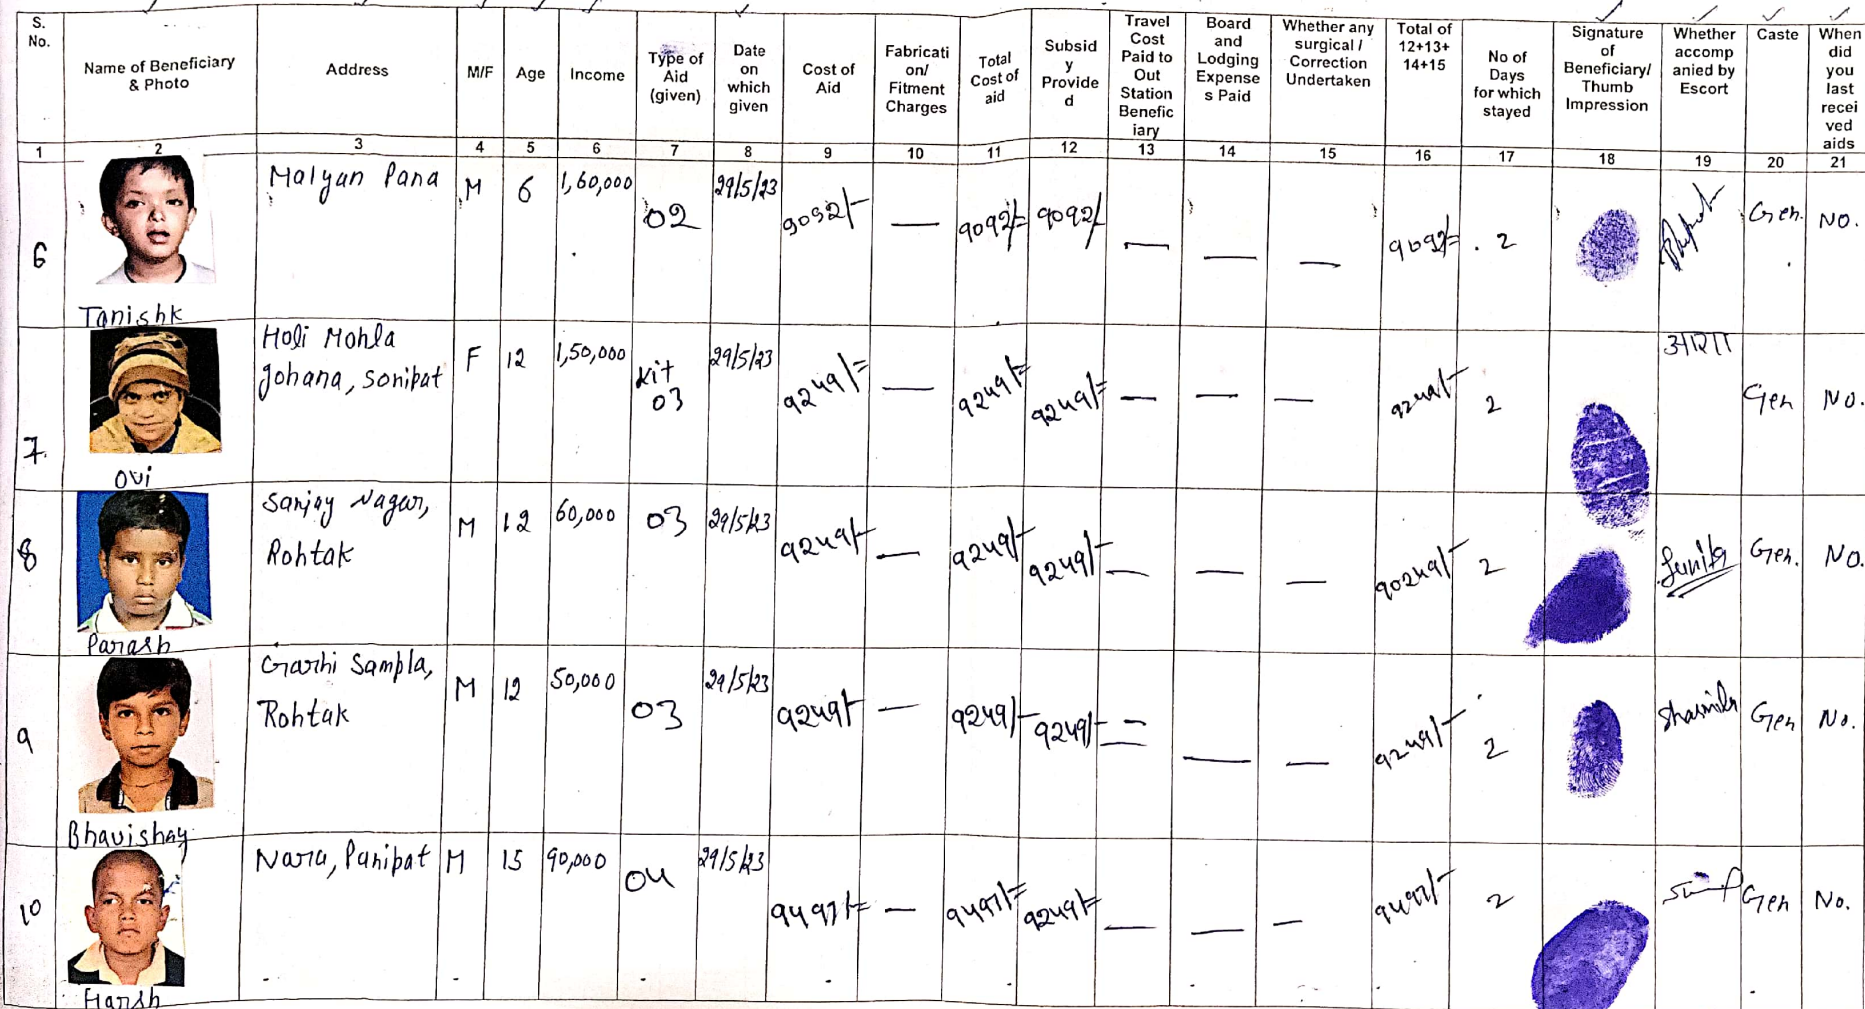 S. No.
Name of Beneficiary & Photo
Address
M/F
Age
Income
Type of Aid (given)
Date on which given
Cost of Aid
Fabricati on/ Fitment Charges
Total Cost of aid
Subsid y Provide d
Travel Cost Paid to Out Station Benefic iary
Board and Lodging Expense s Paid
Whether any surgical / Correction Undertaken
Total of 12+13+ 14+15
No of Days for which stayed
Signature of Beneficiary/ Thumb Impression
Whether accomp anied by Escort
Caste
When did you last recei ved aids
1 2 3 4 5 6 7 8 9 10 11 12 13 14 15 16 17 18 19 20 21
6 Tanishk Malyan Pana M 6 1,60,000 02 29/5/23 9092/- — 9092/= 9092/ — — — 9092/= 2 Gen. No.
7. Ovi Holi Mohla Gohana, Sonipat F 12 1,50,000 Kit 03 29/5/23 9249/= — 9249/= 9249/= — — — 9249/- 2 Gen No.
8 Parash Sanjay Nagar, Rohtak M 12 60,000 03 29/5/23 9249/- — 9249/- 9249/- — — — 90249/- 2 Sunita Gen. No.
9 Bhavishay Garhi Sampla, Rohtak M 12 50,000 03 29/5/23 9249/- — 9249/- 9249/- = — — 9249/- 2 Sharmila Gen No.
10 Harsh Nara, Panipat M 15 90,000 04 29/5/23 9497/= — 9497/= 9249/= — — — 9497/- 2 Gen No.